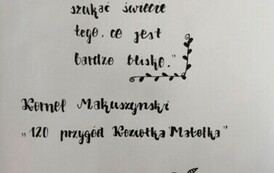 szukać świecie
tego, co jest
bardzo blisko."
Kornel Makuszynski
„120 przygód Koziołka Matołka"